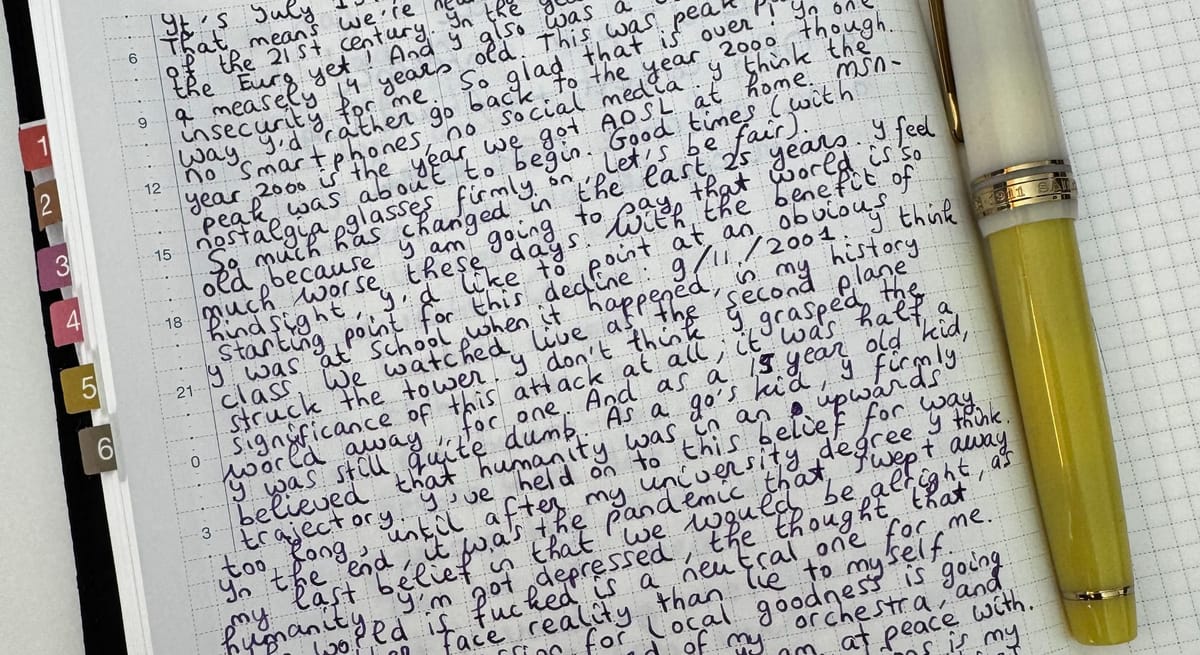 It's July
That means we're
of the 21st century! In the
the Euro yet! And I also was a
a measely 14 years old. This was peak
insecurity for me. So glad that is over! In one
way I'd rather go back to the year 2000 though.
no smartphones, no social media. I think the
year 2000 is the year we got ADSL at home. MSN-
peak was about to begin. Good times (with
nostalgia glasses firmly on, let's be fair).
So much has changed in the last 25 years. I feel
old, because I am going to say that world is so
much worse these days. With the benefit of
hindsight, I'd like to point at an obvious
starting point for this decline: 9/11/2001. I think
I was at school when it happened, in my history
class. We watched live as the second plane
struck the tower. I don't think I grasped the
significance of this attack at all; it was half a
world away, for one. And as a 15 year old kid,
I was still quite dumb. As a 90's kid, I firmly
believed that humanity was in an upwards
trajectory. I've held on to this belief for way
too long, until after my university degree I think.
In the end, it was the pandemic that swept away
my last belief in that we would be alright, as
humanity. I'm not depressed, the thought that
world is fucked is a neutral one for me.
face reality than lie to myself.
for local goodness is going
of my orchestra, and
am at peace with.
is my
6
9
12
15
18
21
0
3
1
2
3
4
5
6
1911